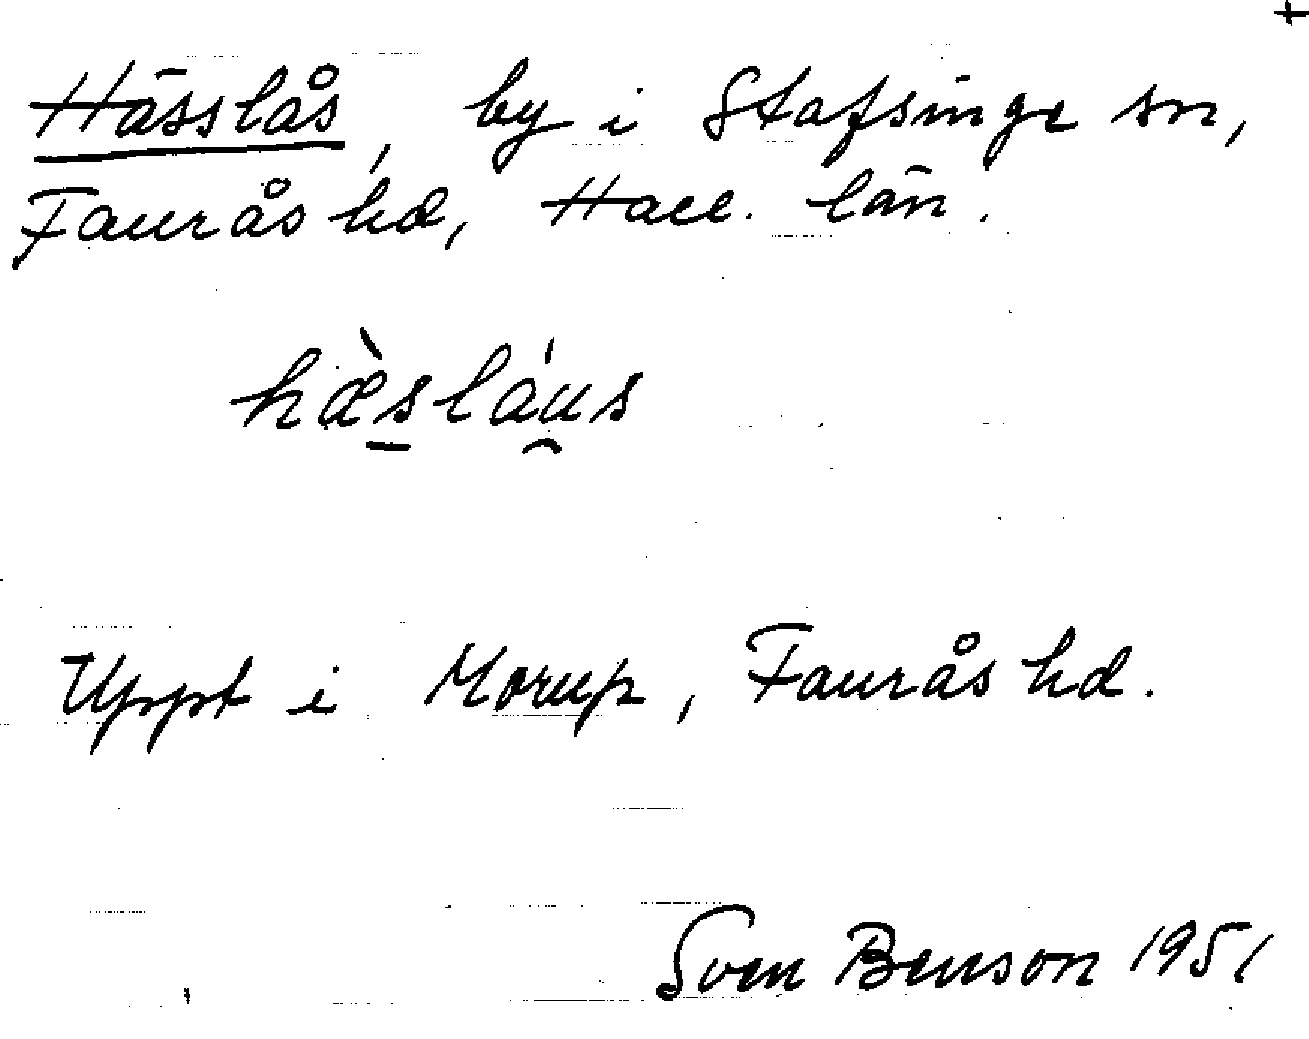 +
Hässlås, by i Stafsinge sn,
Faurås hd, Hall. län.
hæ̀sláu̯s
Uppt i Morup, Faurås hd.
Sven Benson 1951